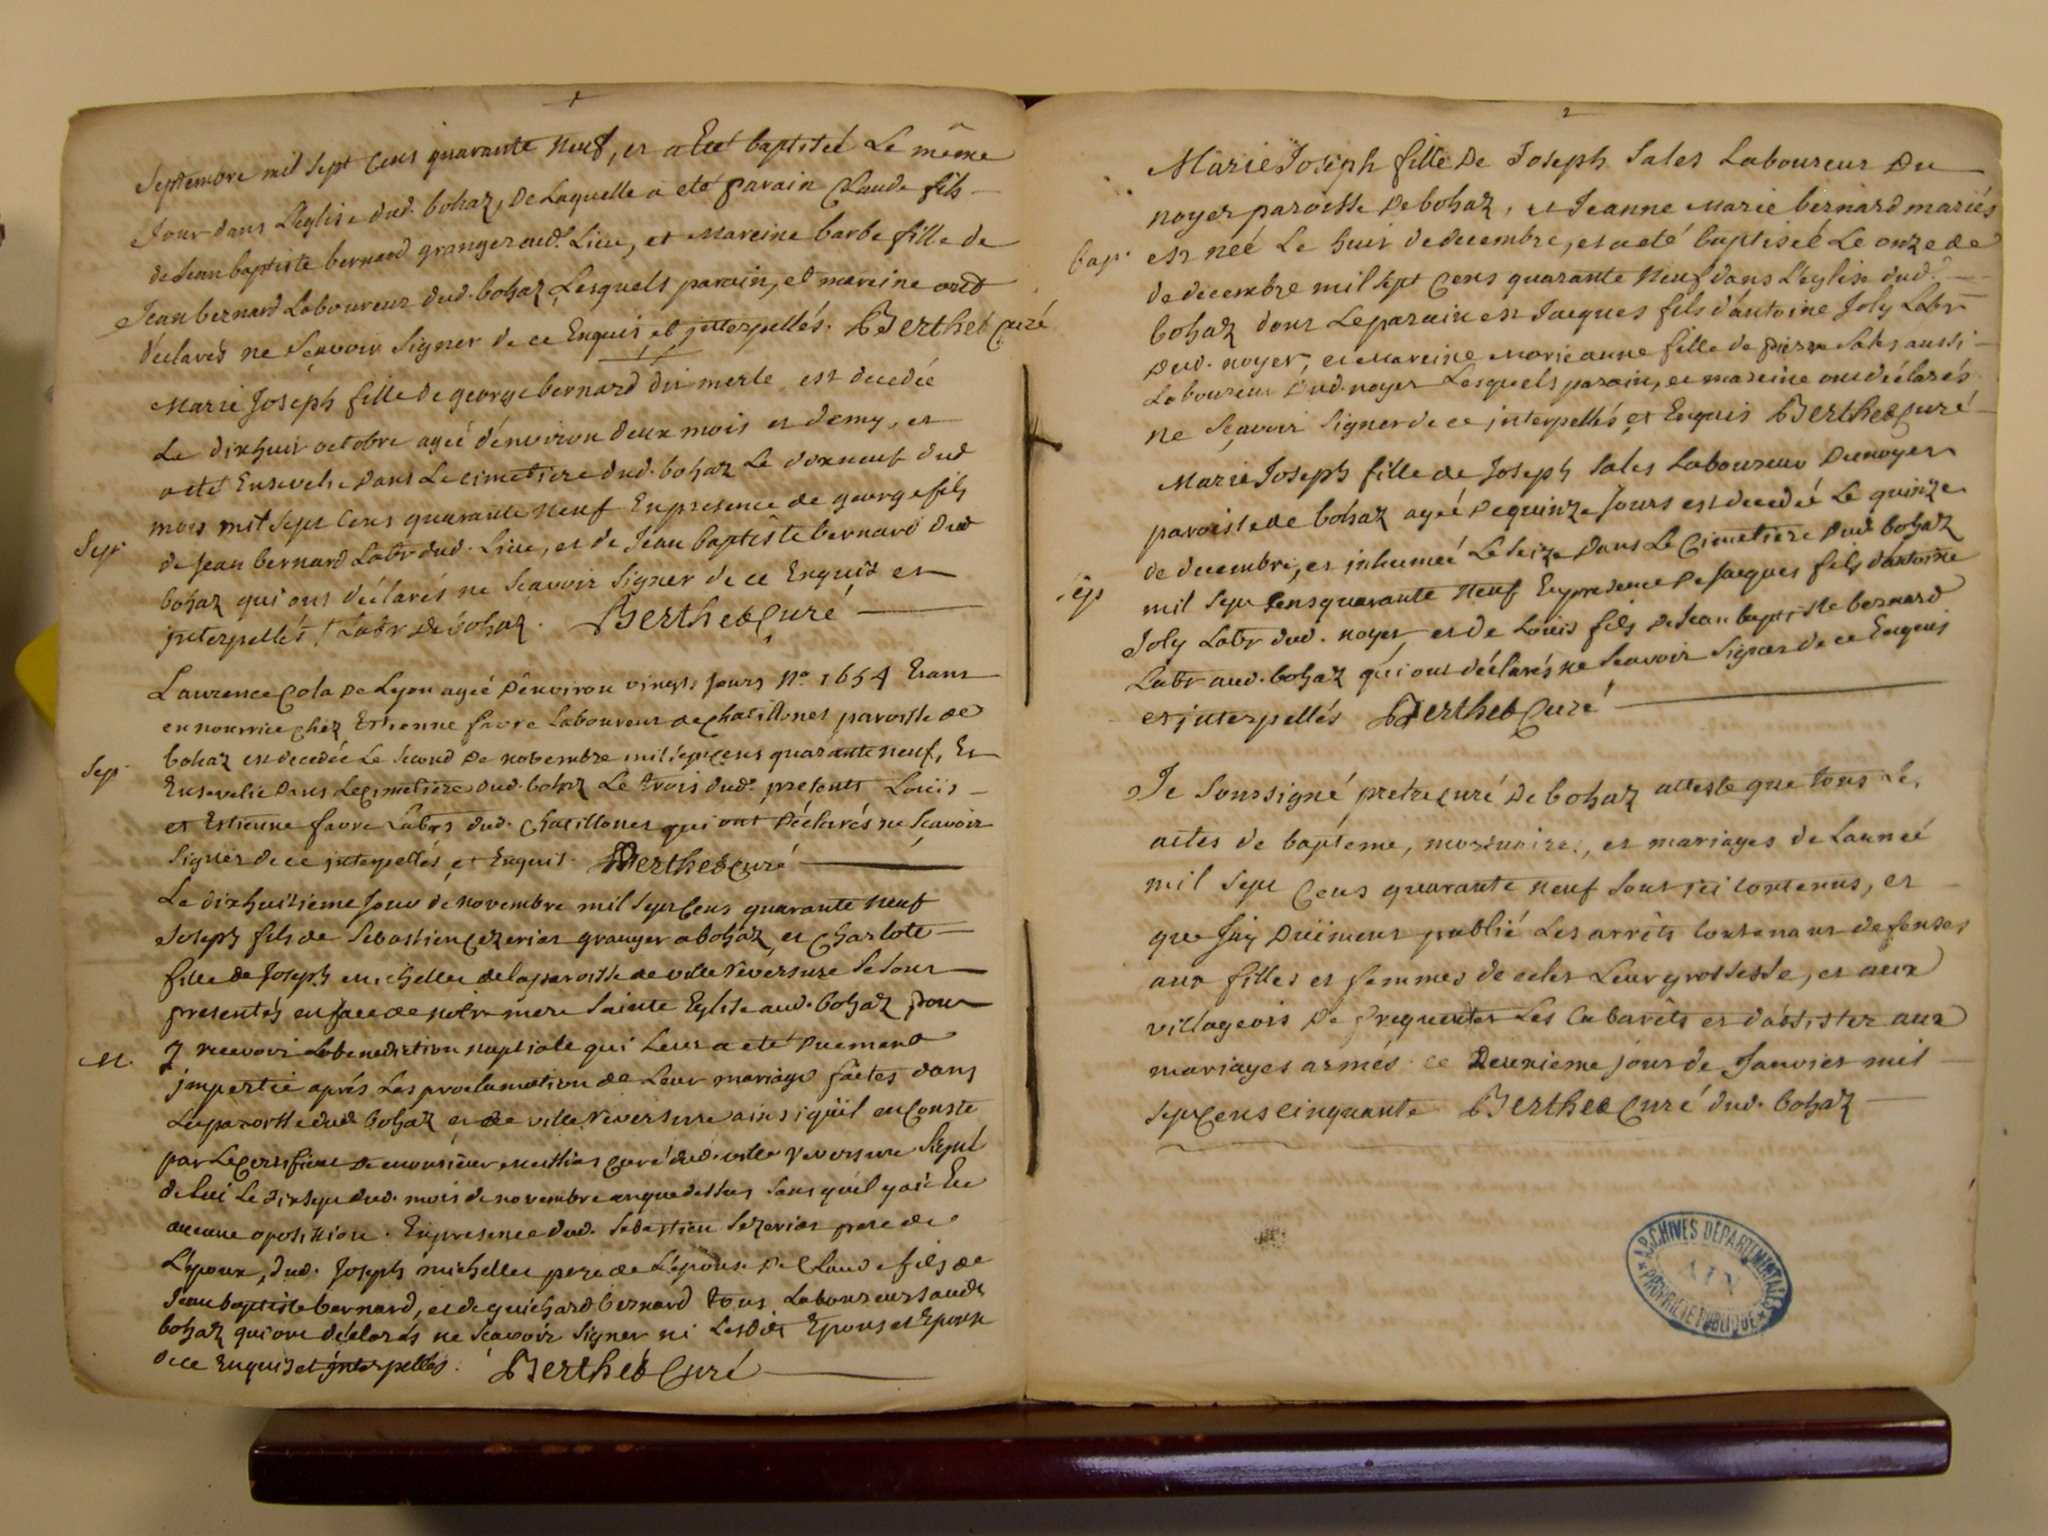 1
Septembre mil sept cens quarante neuf, et a eté baptisée Le même
Jour dans L'eglise dud. bohaz, De Laquelle a eté parain Claude fils
de Jean baptiste bernard granger aud. Lieu, et Mareine barbe fille de
Jean bernard Laboureur dud. bohaz Lesquels parain, et mareine ont
déclarés ne Sçavoir Signer de ce Enquis et interpellés. Berthet Curé
Marie Joseph fille de george bernard dit merle est decedée
Le dixhuit octobre ageé d'environ deux mois et demy, et
a eté Ensevelie Dans Le cimetiere dud. bohaz Le dixneuf dud
mois mil sept Cens quarante neuf En presence de george fils
Sep.
de Jean bernard Labr dud. Lieu, et de Jean baptiste bernard dud
bohaz qui ont déclarés ne Scavoir Signer de ce Enquis et
interpellés / Labr De bohaz. Berthet Curé
Laurence Cola De Lyon ageé D'environ vingt Jours No. 1654 Etant
en nourrice chez Estienne favre Laboureur de chatillonet paroisse de
Sep.
bohaz est decedée Le Second De novembre mil sept cens quarante neuf, Et
Ensevelie Dans Le cimetiere dud. bohaz Le trois dud. presents Loüis
et Estienne favre Labrs dud. Chatillonet qui ont Déclarés ne Sçavoir
Signer de ce interpellés, et Enquis. Berthet Curé
Le dixhuitieme Jour de novembre mil Sept Cens quarante neuf
Joseph fils de Sebastien Cezeriat granger a bohaz, et Charlote
fille de Joseph michellet de la paroisse de ville reversure Se Sont
presentés en face de notre mere Sainte Eglise aud. bohaz pour
M.
y recevoir La benediction nuptiale qui Leur a eté Duement
impertie aprés Les proclamation de Leur mariage faites dans
La paroisse dud bohaz et de ville reversure ainsi qu'il en Conste
par Le Certificat De monsieur mathias curé dud. ville reversure Signé
de Lui Le dixsept dud. mois de novembre an que dessus Sans qu'il y ait Eu
aucune oposition. En presence dud. Sebastien Sezeriat pere de
L'Epoux, dud. Joseph michellet pere de L'epouse De Claude fils de
Jean baptiste bernard, et de guichard bernard tous Laboureurs aud.
bohaz qui ont déclarés ne Sçavoir Signer ni Lesdits Epoux et Epouse
de ce Enquis et interpellés. Berthet Curé
2
Marie Joseph fille De Joseph Sales Laboureur Du
noyer paroisse De bohaz, et Jeanne Marie bernard mariés
bap.
est neé Le huit de decembre, et a eté baptiseé Le onze de
de decembre mil sept Cens quarante neuf dans L'eglise dud.
bohaz dont Le parain est Jacques fils d'antoine Joly Labr
Dud. noyer, et Mareine Marie anne fille de pierre Sales aussi
Laboureur Dud. noyer Lesquels parain, et mareine ont déclarés
ne Sçavoir Signer de ce interpellés, et Enquis Berthet Curé
Marie Joseph fille de Joseph Sales Laboureur Du noyer
paroisse de bohaz ageé De quinze Jours est decedeé Le quinze
de decembre, et inhumeé Le Seize Dans Le Cimetiere Dud. bohaz
Sep
mil Sept Cens quarante neuf En presence De Jacques fils d'antoine
Joly Labr dud. noyer, et de Loüis fils De Jean baptiste bernard
Labr aud. bohaz qui ont déclarés ne Scavoir Signer de ce Enquis
et interpellés Berthet Curé
Je Soussigné pretre curé De bohaz atteste que tous Les
actes de baptéme, mortuaires, et mariages de L'anneé
mil Sept Cens quarante neuf Sont ici contenus, et
que J'ay Düement publié Les arrêts contenant defenses
aux filles et femmes de celer Leur grossesse, et aux
villageois De frequenter Les Cabarêts et d'assister aux
mariages armés ce Deuxieme jour de Janvier mil
Sept Cens cinquante Berthet Curé dud. bohaz
ARCHIVES DÉPARTEMENTALES
AIN
PROPRIÉTÉ PUBLIQUE